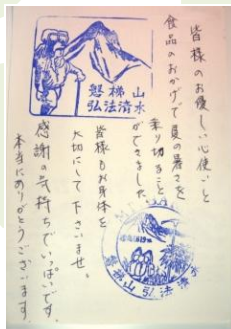 皆様のお優しい心使いと
食品のおかげで夏の暑さを
乗り切ること
ができました。
皆様もお身体を
大切にして下さいませ。
感謝の気持ちでいっぱいです。
本当にありがとうございます。
磐梯山
弘法清水
磐梯山弘法清水